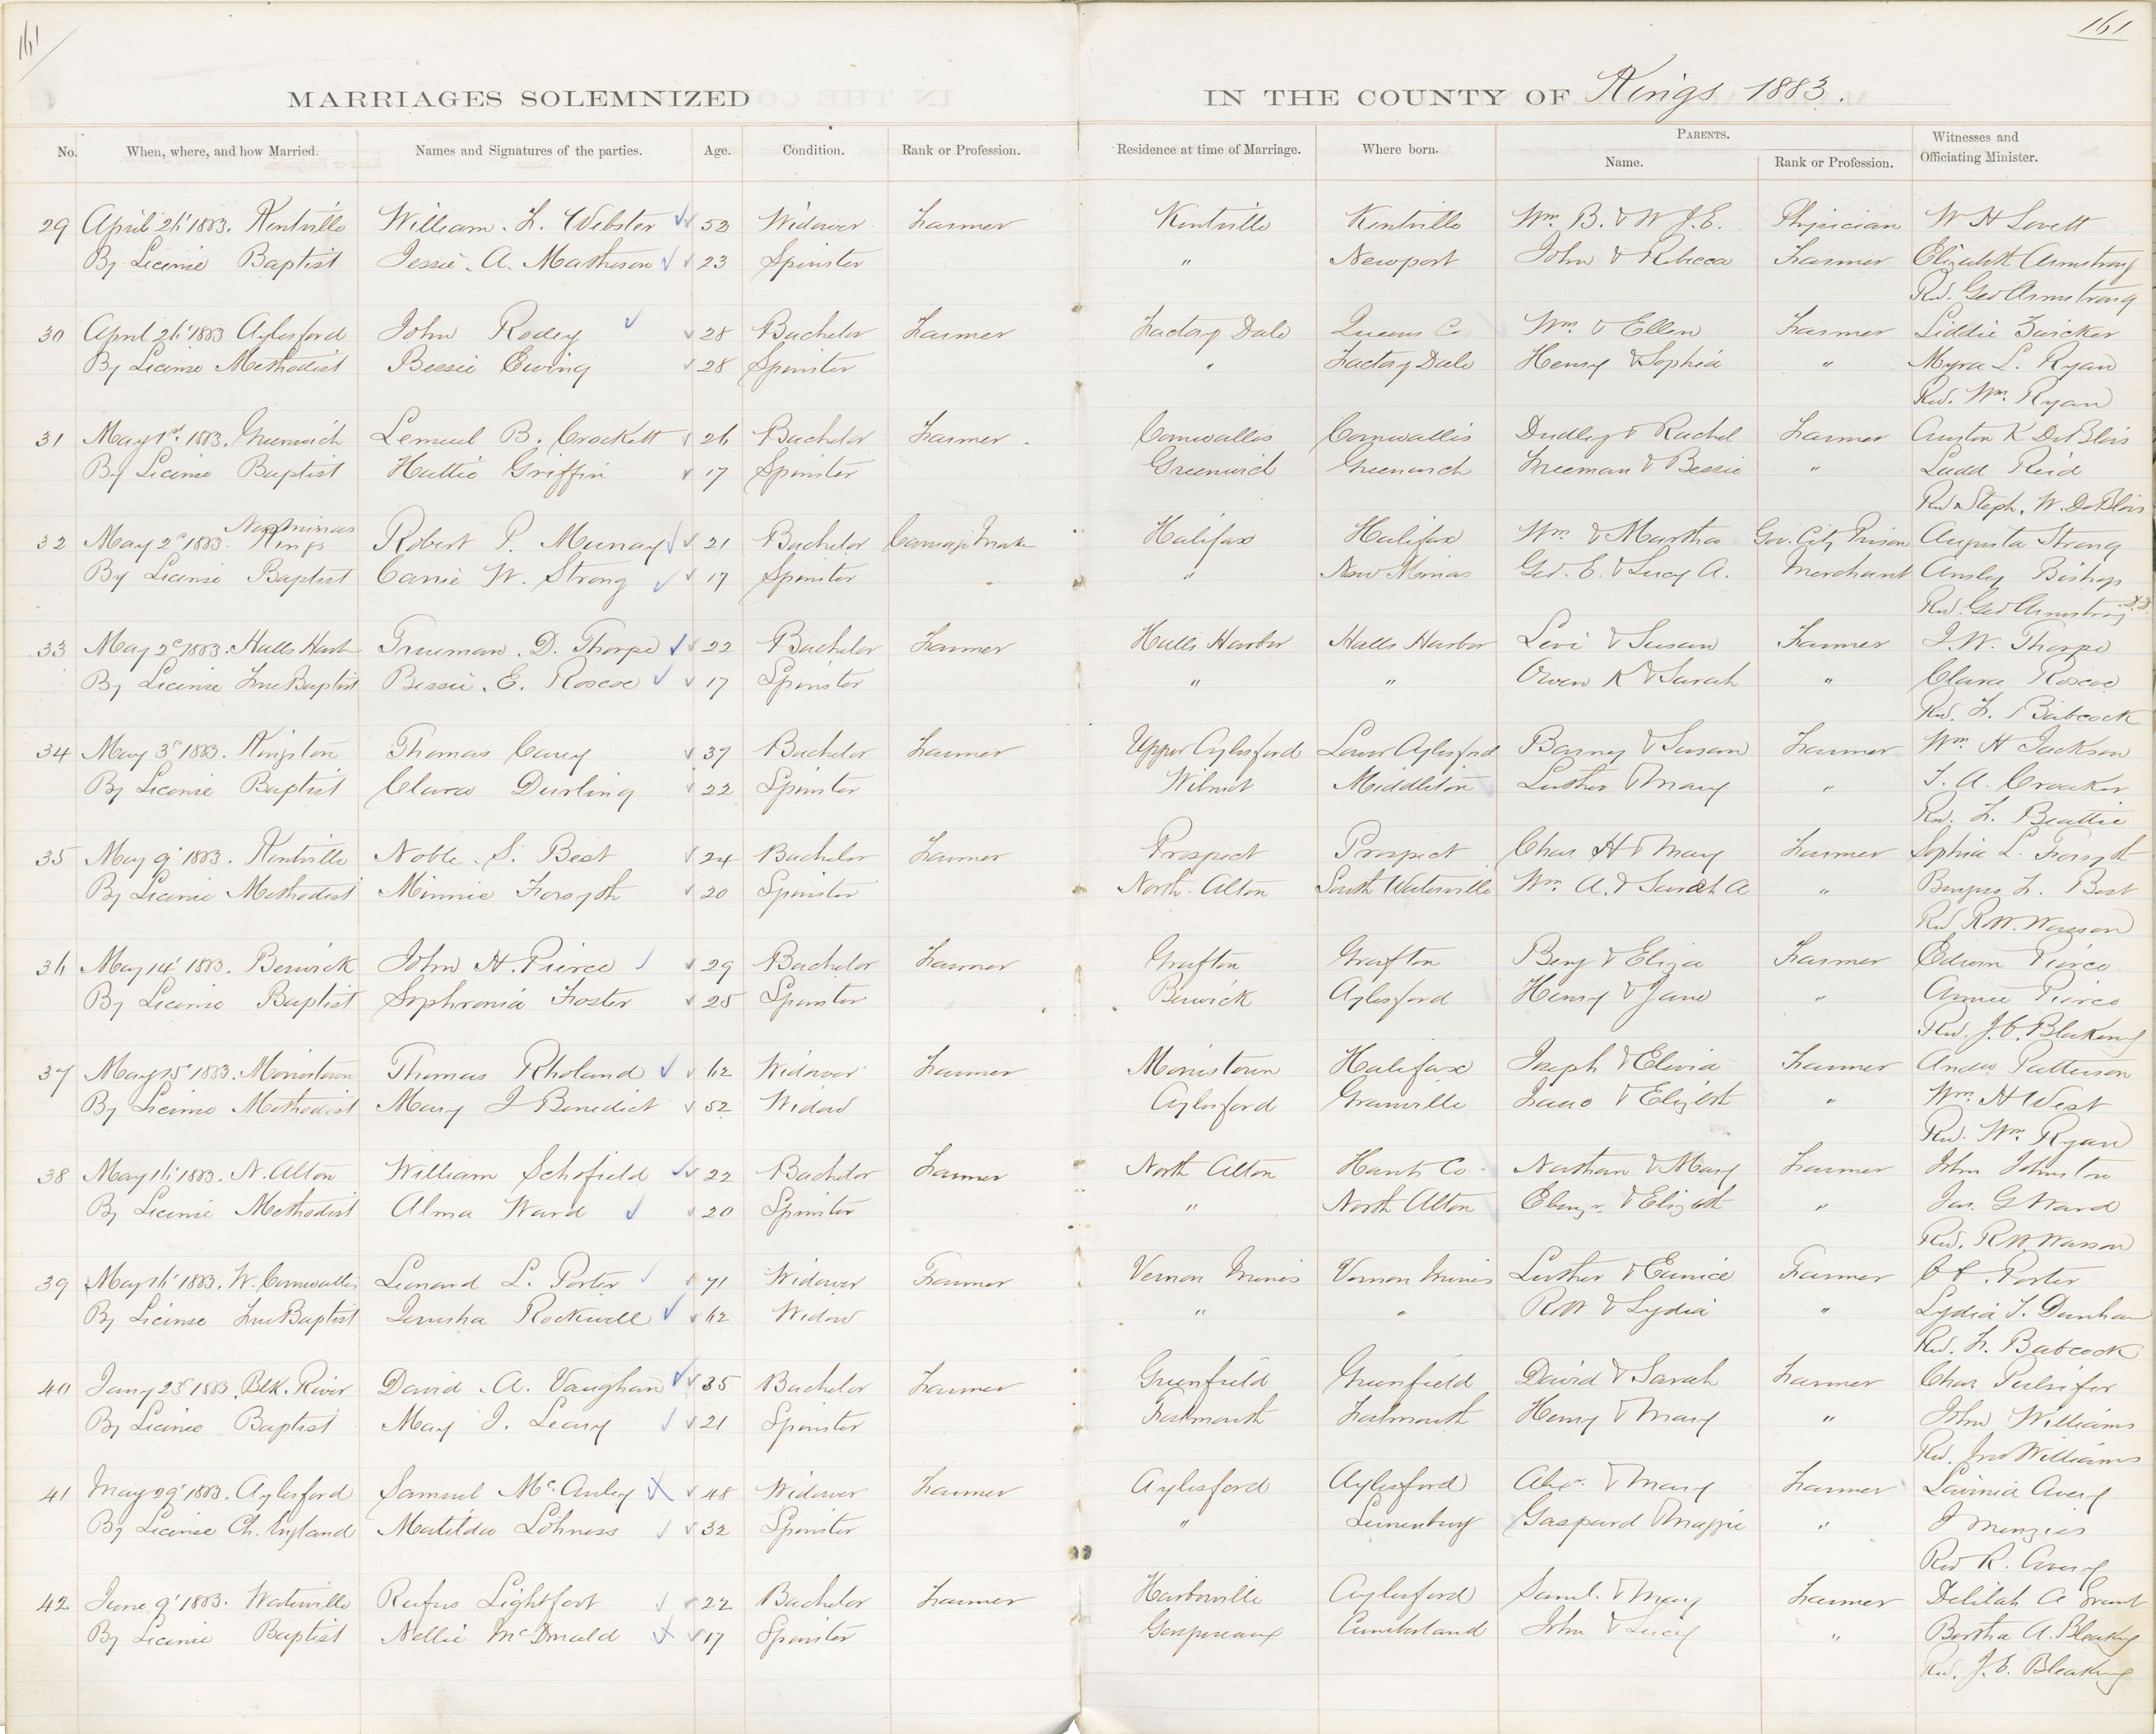 161
161
MARRIAGES SOLEMNIZED IN THE COUNTY OF Kings 1883.
No. When, where, and how Married. Names and Signatures of the parties. Age. Condition. Rank or Profession. Residence at time of Marriage. Where born. PARENTS. Name. Rank or Profession. Witnesses and Officiating Minister.
29 April 26' 1883. Kentville William. F. Webster 53 Widower Farmer Kentville Kentville Wm. B. & W J.E. Physician W H Lovett
By License Baptist Jessie. A. Matheson 23 Spinster " Newport John & Rebecca Farmer Elizabeth Armstrong
Rev. Geo Armstrong
30 April 26' 1883 Aylesford John Rodey 28 Bachelor Farmer Factory Dale Queens Co. Wm. & Ellen Farmer Liddie Zwicker
By License Methodist Bessie Ewing 28 Spinster " Factory Dale Henry & Sophia " Myra L. Ryan
Rev. Wm. Ryan
31 May 1st. 1883. Greenwich Lemuel B. Crockett 26 Bachelor Farmer. Cornwallis Cornwallis Dudley & Rachel Farmer Auston K DeBlois
By License Baptist Hattie Griffin 17 Spinster Greenwich Greenwich Freeman & Bessie " Ladd Reid
Rev Steph. W. DeBlois
32 May 2d 1883. New Minas Kings Robert P. Murray 21 Bachelor Carriage Maker Halifax Halifax Wm. & Martha Gov. City Prison Augusta Strong
By License Baptist Carrie W. Strong 17 Spinster " New Minas Geo. E. & Lucy A. Merchant Ansley Bishop
Rev. Geo Armstrong D.D.
33 May 2d 1883. Halls Harb Trueman. D. Thorpe 22 Bachelor Farmer Halls Harbor Halls Harbor Levi & Susan Farmer J. W. Thorpe
By License Free Baptist Bessie. E. Roscoe 17 Spinster " " Owen K & Sarah " Clara Roscoe
Rev. F. Babcock
34 May 3d 1883. Kingston Thomas Carey 37 Bachelor Farmer Upper Aylesford Lower Aylesford Barney & Susan Farmer Wm. H Jackson
By License Baptist Clara Durling 22 Spinster Wilmot Middleton Luther & Mary " T. A. Crocker
Rev. F. Beattie
35 May 9' 1883. Kentville Noble. S. Best 24 Bachelor Farmer Prospect Prospect Chas H & Mary Farmer Sophia L. Forsyth
By License Methodist Minnie Forsyth 20 Spinster North. Alton South Waterville Wm. A. & Sarah A " F. Best
Rev R.W. Wasson
36 May 14' 1883. Berwick John H. Pierce 29 Bachelor Farmer Grafton Grafton Benj & Eliza Farmer Edwin Pierce
By License Baptist Sophronia Foster 25 Spinster Berwick Aylesford Henry & Jane " Annie Pierce
Rev. J. E. Bleakney
37 May 15' 1883. Morristown Thomas Rholand 62 Widower Farmer Morristown Halifax Joseph & Elivia Farmer Andw Patterson
By License Methodist Mary J Benedict 52 Widow Aylesford Granville Isaac & Elizbth " Wm. H West
Rev. Wm. Ryan
38 May 16' 1883. N. Alton William Schofield 22 Bachelor Farmer North Alton Hants Co. Nathan & Mary Farmer John Johnston
By License Methodist Alma Ward 20 Spinster " North Alton Ebenzr. & Elizbth " Jas. G Ward
Rev. R.W. Wasson
39 May 16' 1883. W. Cornwallis Leonard L. Porter 71 Widower Farmer Vernon Mines Vernon Mines Luther & Eunice Farmer C C. Porter
By License Free Baptist Jerusha Rockwell 62 Widow " " R W & Lydia " Lydia J. Dunham
Rev. F. Babcock
40 Jany 23d 1883. Blk. River David. A. Vaughan 35 Bachelor Farmer Greenfield Greenfield David & Sarah Farmer Chas Pulsifer
By License Baptist May J. Leary 21 Spinster Falmouth Falmouth Henry & Mary " John Williams
Rev. Jno Williams
41 May 29' 1883. Aylesford Samuel McAuley 48 Widower Farmer Aylesford Aylesford Alexr. & Mary Farmer Lavinia Avery
By License Ch. England Matilda Lohness 32 Spinster " Lunenburg Gaspard & Maggie " J Menzies
Rev R. Avery
42 June 9' 1883. Waterville Rufus Lightfoot 22 Bachelor Farmer Harborville Aylesford Saml. & Mary Farmer Delilah A Grant
By License Baptist Nellie McDonald 17 Spinster Gaspereaux Cumberland John & Lucy " Bertha A. Bleakney
Rev. J. E. Bleakney